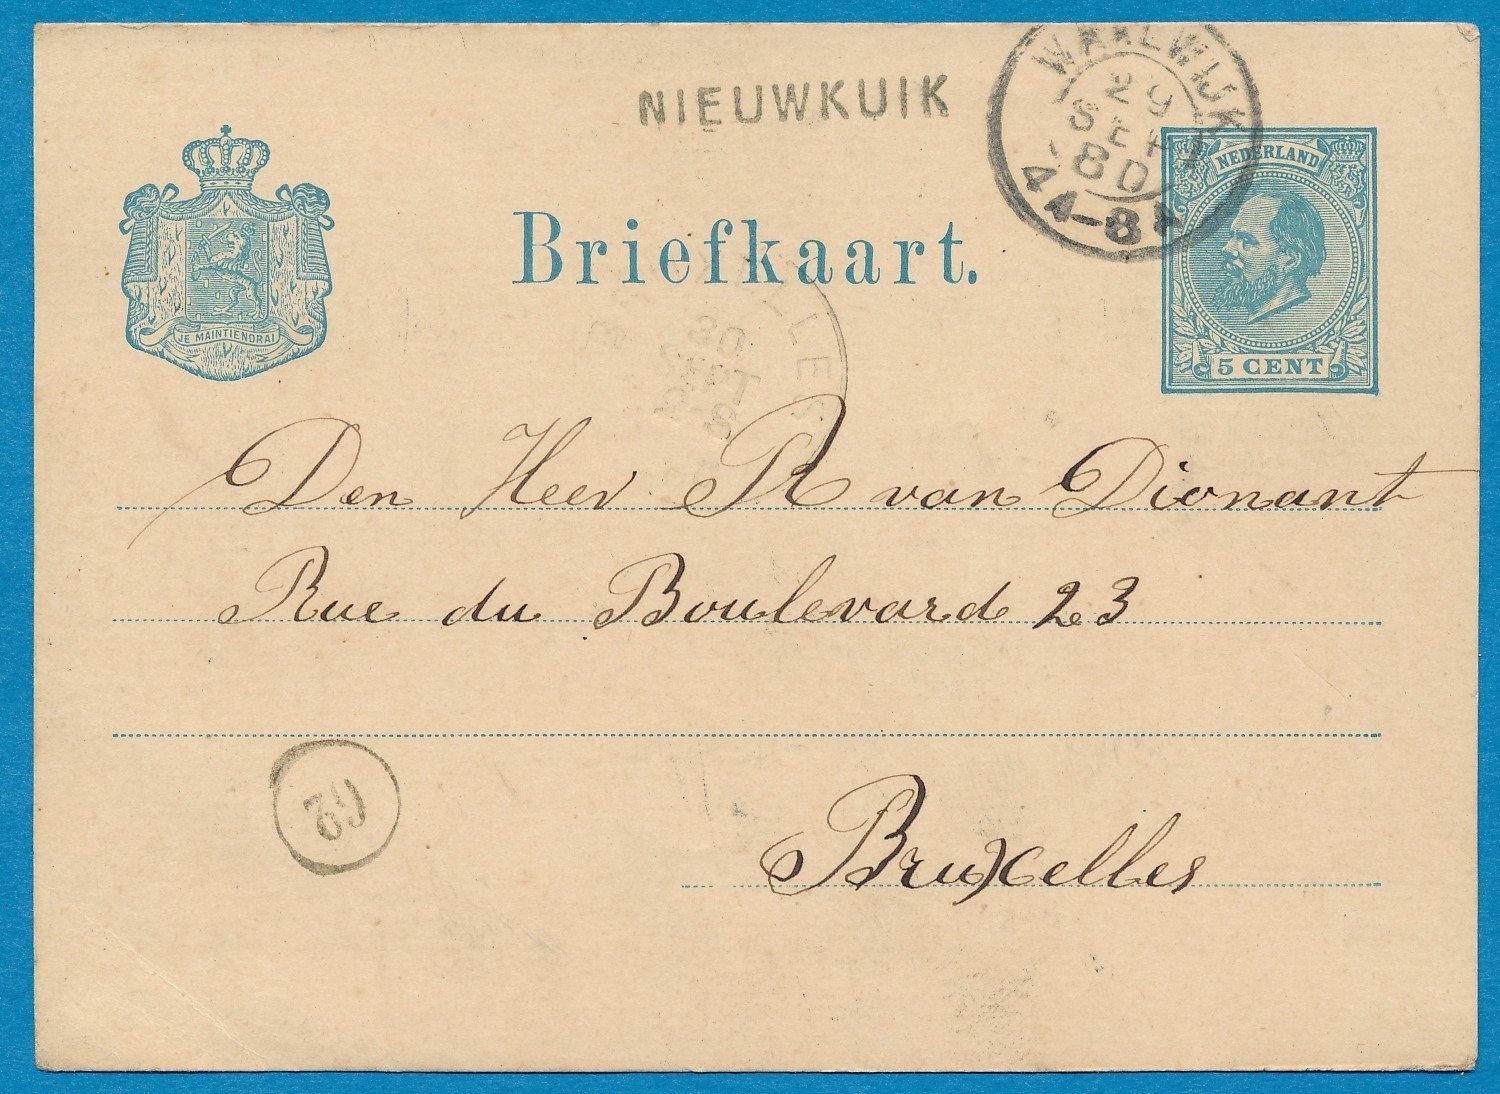 NIEUWKUIK
WAALWIJK
29
SEP
80
4A-8
NEDERLAND
5 CENT
JE MAINTIENDRAI
Briefkaart.
30
SEPT
Den Heer R van Dionant
Rue du Boulevard 23
Bruxelles
39